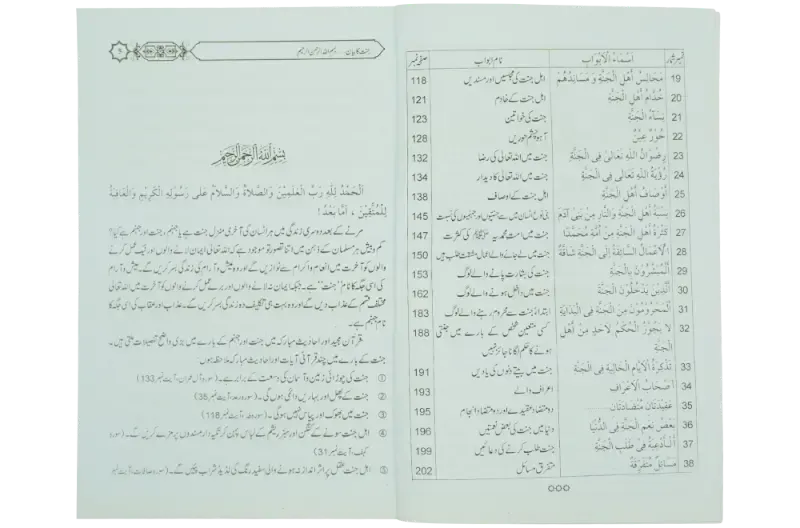 نمبر شمار اَسْمَاءُ الْاَبْوَابِ نام ابواب صفحہ نمبر
19 مَجَالِسُ أَهْلِ الْجَنَّةِ وَ مَسَانِدُهُمْ اہل جنت کی مجلسیں اور مسندیں 118
20 خُدَّامُ أَهْلِ الْجَنَّةِ اہل جنت کے خادم 121
21 نِسَاءُ الْجَنَّةِ جنت کی خواتین 123
22 حُوْرٌ عِيْنٌ آہو چشم حوریں 128
23 رِضْوَانُ اللهِ تَعَالٰى فِى الْجَنَّةِ جنت میں اللہ تعالیٰ کی رضا 132
24 رُؤْيَةُ اللهِ تَعَالٰى فِى الْجَنَّةِ جنت میں اللہ تعالیٰ کا دیدار 134
25 أَوْصَافُ أَهْلِ الْجَنَّةِ اہل جنت کے اوصاف 138
26 نِسْبَةُ أَهْلِ الْجَنَّةِ وَالنَّارِ مِنْ بَنِى آدَمَ بنی نوع انسان میں سے جنتیوں اور جہنمیوں کی نسبت 145
27 كَثْرَةُ أَهْلِ الْجَنَّةِ مِنْ أُمَّةِ مُحَمَّدٍ جنت میں امت محمدیہ ﷺ کی کثرت 147
28 اَلْأَعْمَالُ السَّائِقَةُ إِلَى الْجَنَّةِ شَاقَّةٌ جنت میں لے جانے والے اعمال مشقت طلب ہیں 150
29 اَلْمُبَشَّرُوْنَ بِالْجَنَّةِ جنت کی بشارت پانے والے لوگ 153
30 اَلَّذِيْنَ يَدْخُلُوْنَ الْجَنَّةَ جنت میں داخل ہونے والے لوگ 162
31 اَلْمَحْرُوْمُوْنَ مِنَ الْجَنَّةِ فِى الْبِدَايَةِ ابتداءً جنت سے محروم رہنے والے لوگ 183
32 لَا يَجُوْزُ الْحُكْمُ لِأَحَدٍ مِنْ أَهْلِ کسی متعین شخص کے بارے میں جنتی 188
الْجَنَّةِ ہونے کا حکم لگانا جائز نہیں
33 تَذْكِرَةُ الْأَيَّامِ الْخَالِيَةِ فِى الْجَنَّةِ جنت میں بیتے دنوں کی یادیں 191
34 أَصْحَابُ الْأَعْرَافِ اعراف والے 193
35 عَقِيْدَتَانِ مُتَضَادَّتَانِ دو متضاد عقیدے اور دو متضاد انجام 195
36 بَعْضُ نِعَمِ الْجَنَّةِ فِى الدُّنْيَا دنیا میں جنت کی بعض نعمتیں 196
37 اَلْأَدْعِيَةُ فِى طَلَبِ الْجَنَّةِ جنت طلب کرنے کی دعائیں 199
38 مَسَائِلُ مُتَفَرِّقَةٌ متفرق مسائل 202
جنت کا بیان ..... بسم اللہ الرحمن الرحیم
بِسْمِ اللهِ الرَّحْمٰنِ الرَّحِيْمِ
اَلْحَمْدُ لِلّٰهِ رَبِّ الْعٰلَمِيْنَ وَالصَّلَاةُ وَالسَّلَامُ عَلٰى رَسُوْلِهِ الْكَرِيْمِ وَالْعَاقِبَةُ
لِلْمُتَّقِيْنَ ، أَمَّا بَعْدُ !
مرنے کے بعد دوسری زندگی میں ہر انسان کی آخری منزل جنت ہے یا جہنم، جنت اور جہنم ہے کیا؟
کم و بیش ہر مسلمان کے ذہن میں اتنا تصور تو موجود ہے کہ اللہ تعالیٰ ایمان لانے والوں اور نیک عمل کرنے
والوں کو آخرت میں انعام و اکرام سے نوازیں گے اور وہ عیش و آرام کی زندگی بسر کریں گے۔ عیش و آرام
کی اسی جگہ کا نام ”جنت“ ہے۔ جبکہ ایمان نہ لانے والوں اور برے عمل کرنے والوں کو آخرت میں اللہ تعالیٰ
مختلف قسم کے عذاب دیں گے اور وہ بہت ہی تکلیف دہ زندگی بسر کریں گے۔ عذاب اور عقاب کی اسی جگہ کا
نام جہنم ہے۔
قرآن مجید اور احادیث مبارکہ میں جنت اور جہنم کے بارے میں بڑی واضح تفصیلات ملتی ہیں۔
جنت کے بارے میں چند قرآنی آیات اور احادیث مبارکہ ملاحظہ ہوں
① جنت کی چوڑائی زمین و آسمان کی وسعت کے برابر ہے۔ (سورہ آل عمران، آیت نمبر 133)
② جنت کے پھل اور بہاریں دائمی ہوں گی۔ (سورہ رعد، آیت نمبر 35)
③ جنت میں بھوک اور پیاس نہیں ہوگی۔ (سورہ طہ، آیت نمبر 118)
④ اہل جنت سونے کے کنگن اور سبز ریشم کے لباس پہن کر تکیہ دار مسندوں پر مزے کریں گے۔ (سورہ
کہف، آیت نمبر 31)
⑤ اہل جنت عقل پر اثر انداز نہ ہونے والی سفید رنگ کی لذیذ شراب پئیں گے۔ (سورہ صافات، آیت نمبر